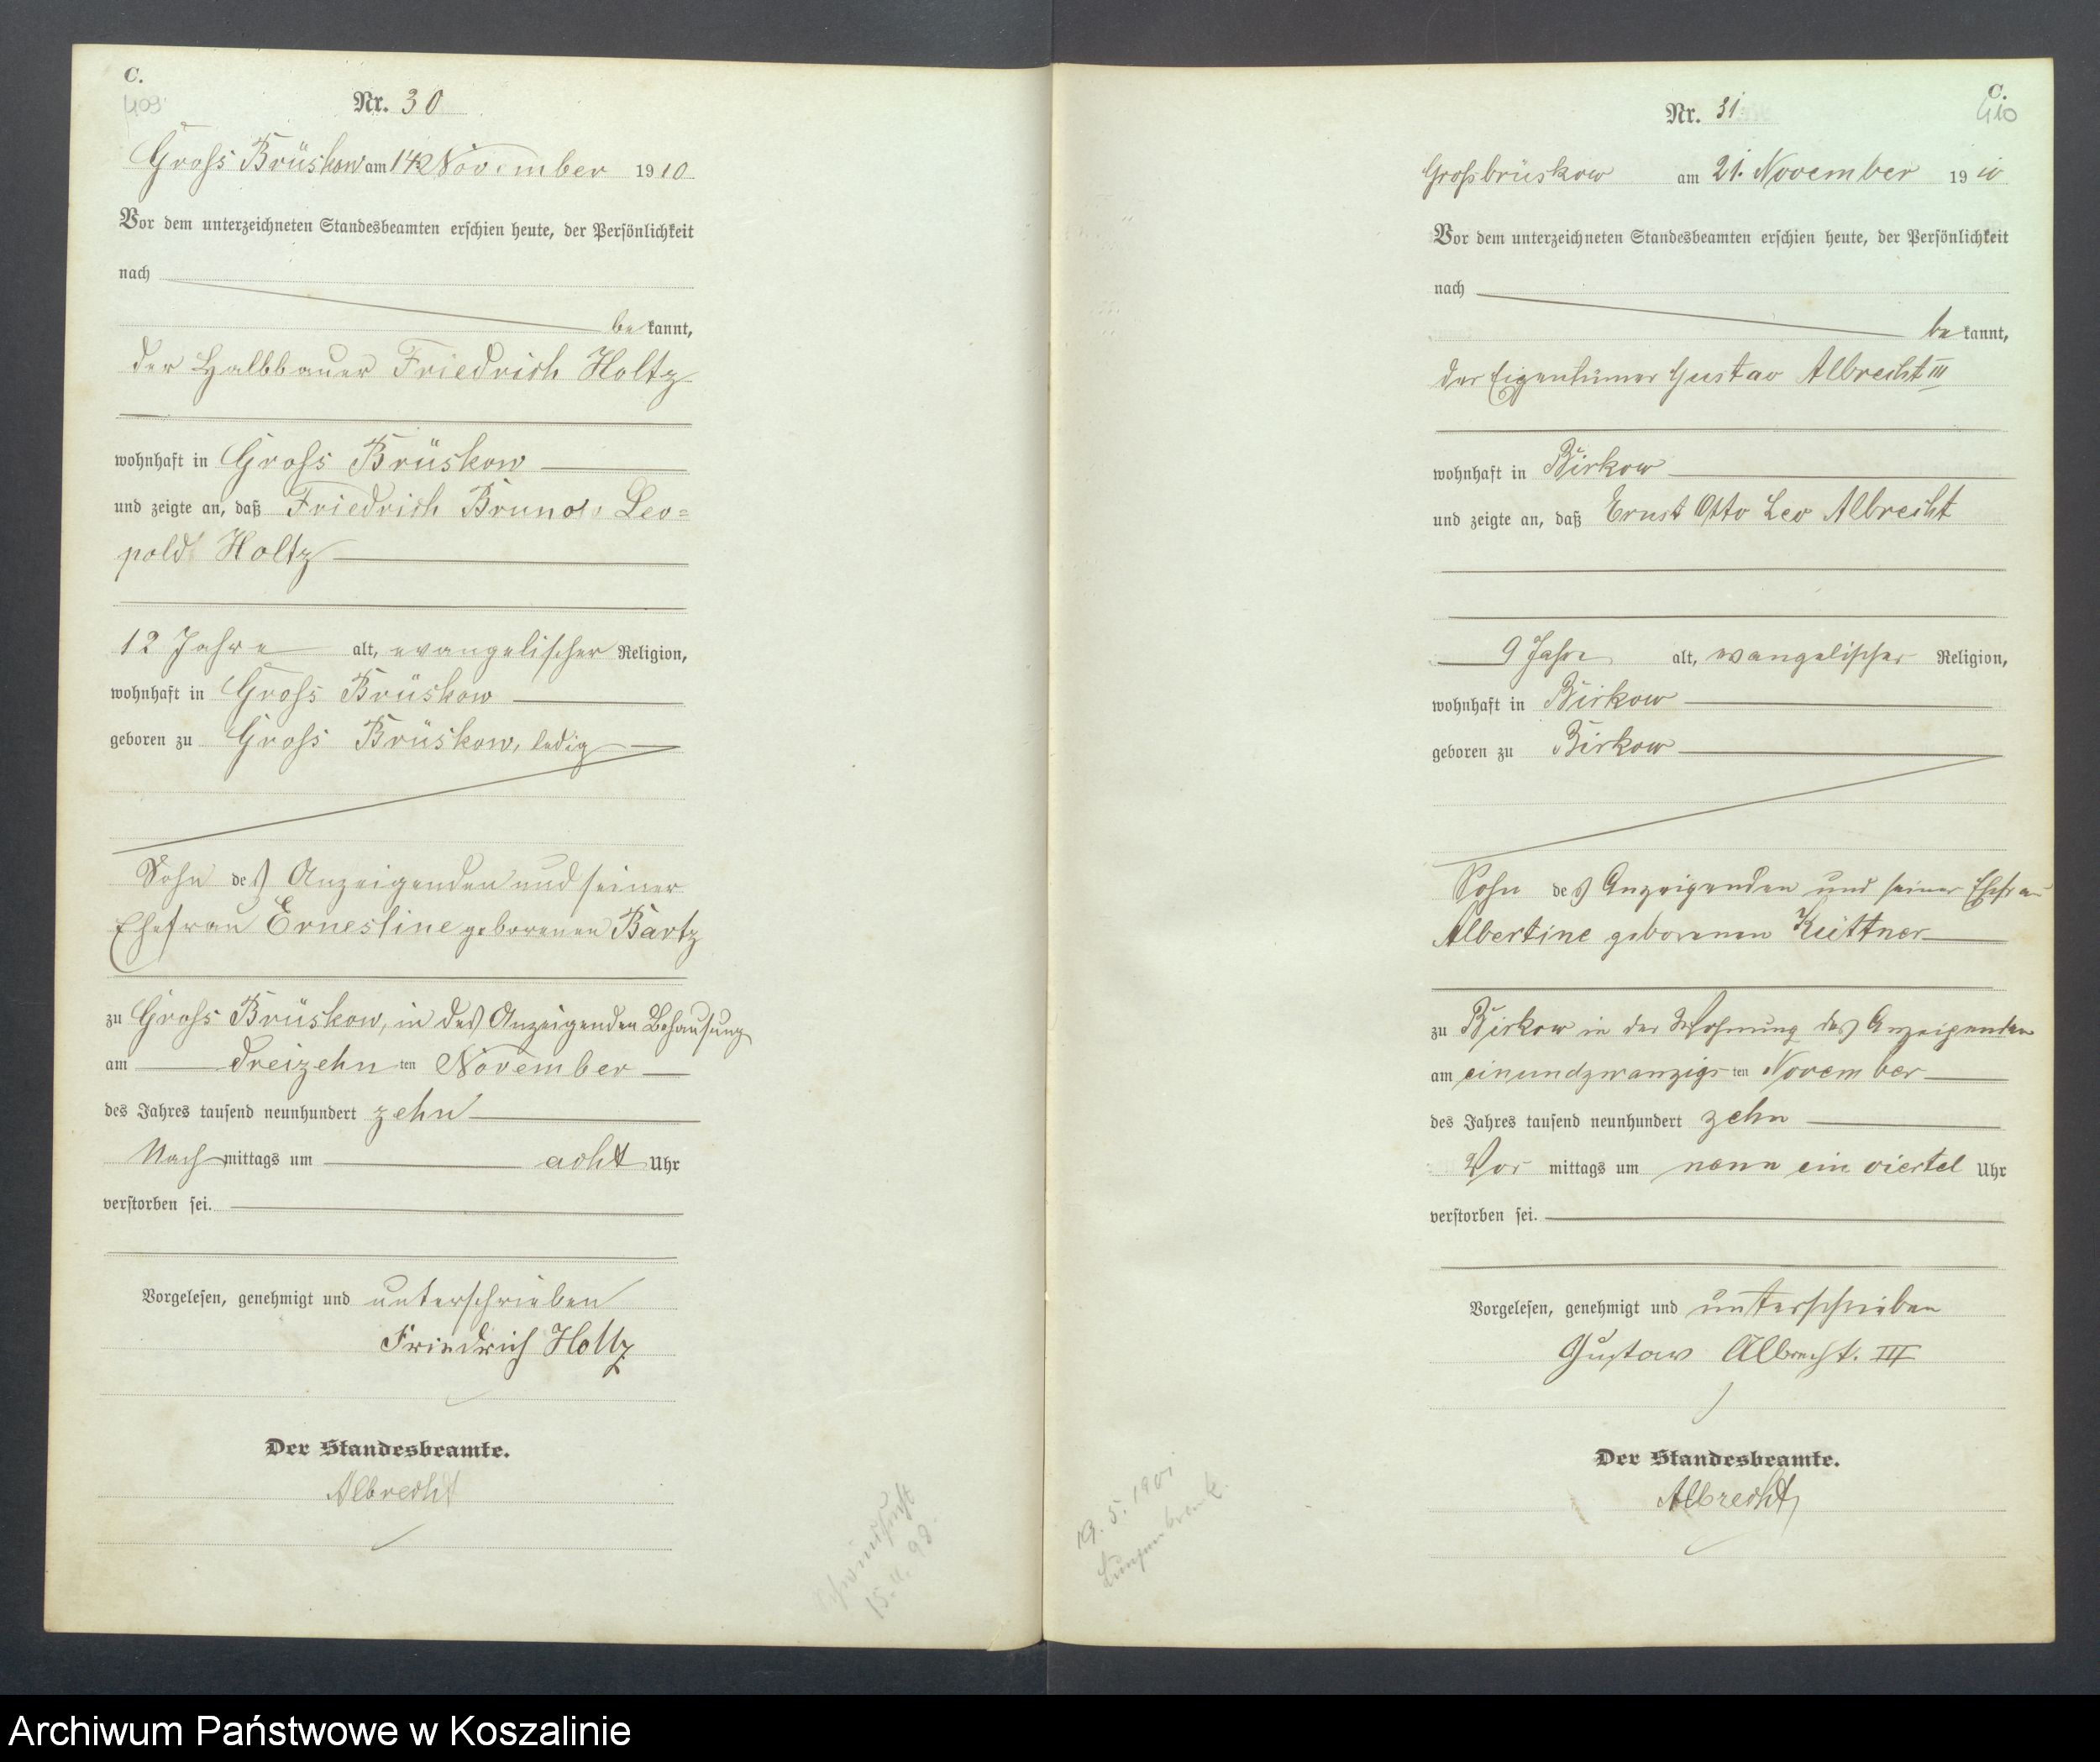 C.
409
Nr. 30
Gross Brüskow am 14ten November 1910
Vor dem unterzeichneten Standesbeamten erschien heute, der Persönlichkeit
nach
be kannt,
der Halbbauer Friedrich Holtz
wohnhaft in Gross Brüskow
und zeigte an, daß Friedrich Bruno Leo=
pold Holtz
12 Jahre alt, evangelischer Religion,
wohnhaft in Gross Brüskow
geboren zu Gross Brüskow, ledig
Sohn des Anzeigenden und seiner
Ehefrau Ernestine geborenen Bartz
zu Gross Brüskow, in des Anzeigenden Behausung
am dreizehn ten November
des Jahres tausend neunhundert zehn
Nach mittags um acht Uhr
verstorben sei.
Vorgelesen, genehmigt und unterschrieben
Friedrich Holtz
Der Standesbeamte.
Albrecht
Schwindsucht
C.
410
Nr. 31
Grossbrüskow am 21. November 1910
Vor dem unterzeichneten Standesbeamten erschien heute, der Persönlichkeit
nach
be kannt,
der Eigentümer Gustav Albrecht III
wohnhaft in Birkow
und zeigte an, daß Ernst Otto Leo Albrecht
9 Jahre alt, evangelischer Religion,
wohnhaft in Birkow
geboren zu Birkow
Sohn des Anzeigenden und seiner Ehefrau
Albertine geborenen Küttner
zu Birkow in der Wohnung des Anzeigenden
am einundzwanzigs ten November
des Jahres tausend neunhundert zehn
Vor mittags um neun ein viertel Uhr
verstorben sei.
Vorgelesen, genehmigt und unterschrieben
Gustav Albrecht. III
Der Standesbeamte.
Albrecht
19. 5. 1901
Archiwum Państwowe w Koszalinie